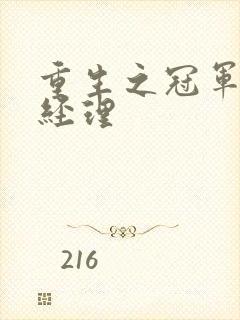 重生之冠軍
經理
216